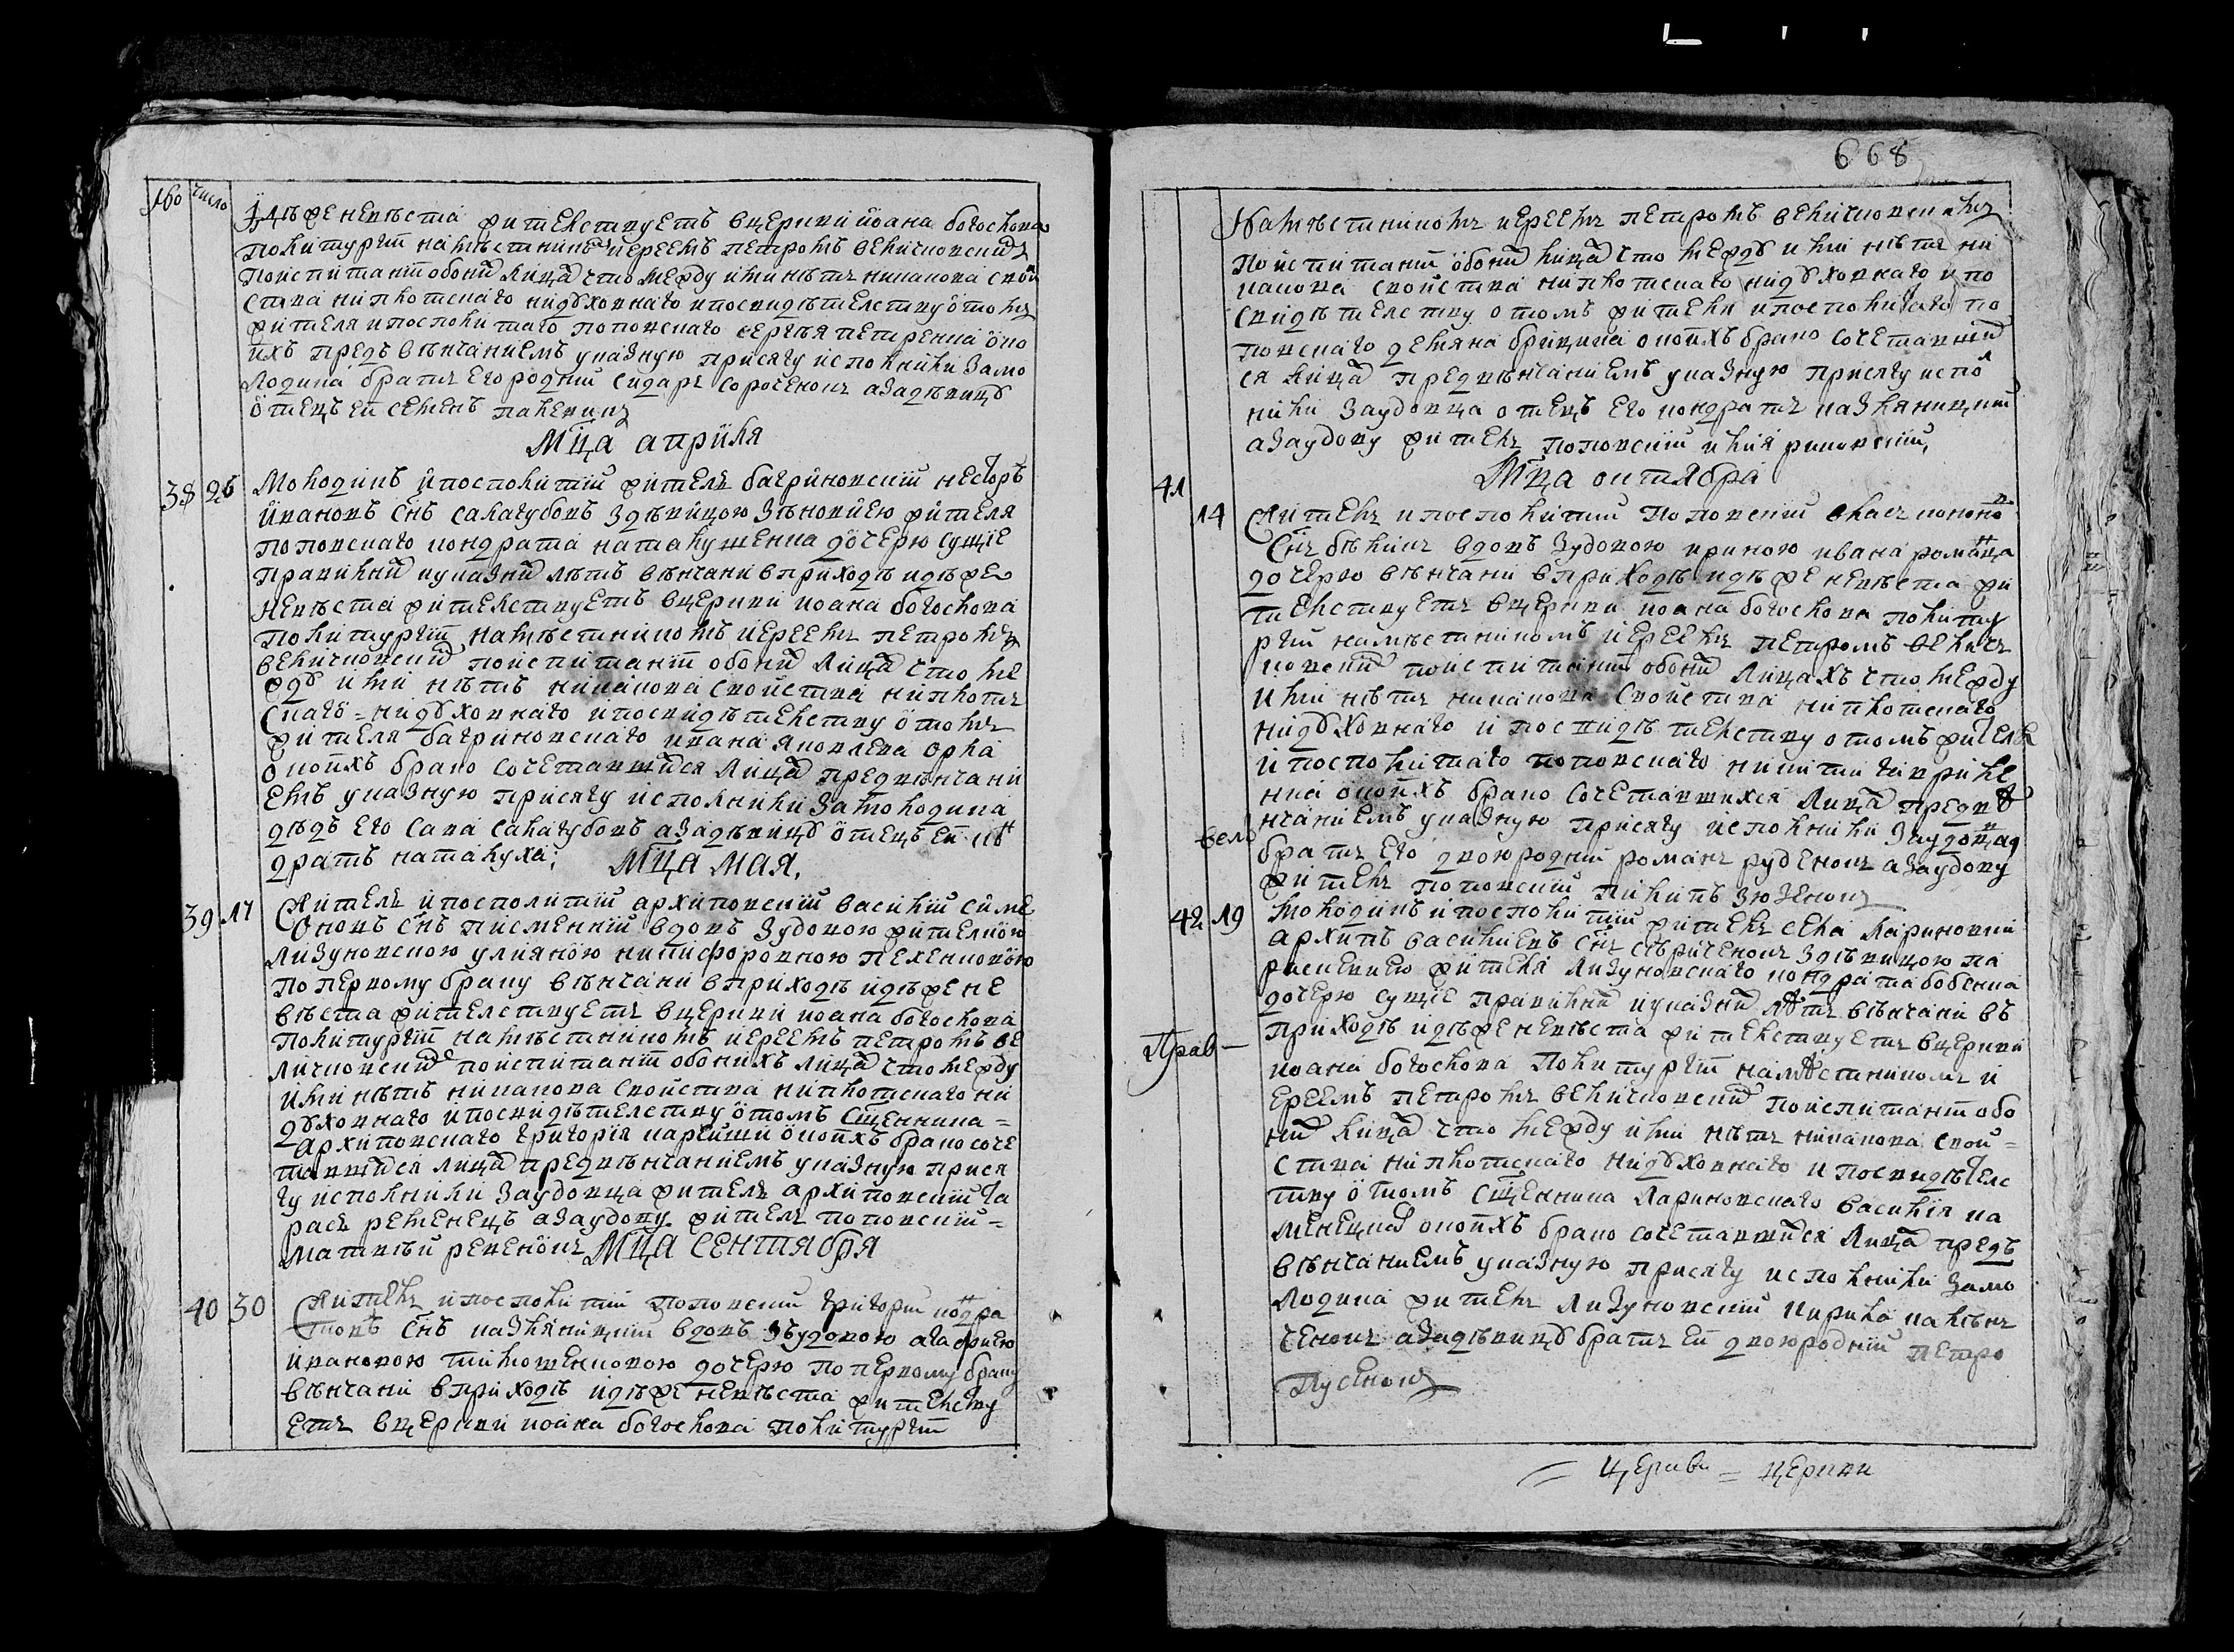 число
идѣже невѣста жителствуетъ вцеркви иоана богослова
политургіи намѣстникомъ иереемъ петромъ величковскимъ
поиспитаніи обоихъ лицъ что между ими нѣтъ никакова свой
ства ниплотскаго нидховнаго и посвидѣтелству о томъ
жителя и посполитаго поповскаго сергѣя петренка око
ихъ предъ вѣнчаниемъ указную присягу исполнили замо
лодика братъ его родний сидаръ сороченокъ азадѣвицу
отецъ ей семенъ
Мца априля
38 26 Молодикъ и посполитій житель багриновскій несторъ
ивановъ снъ салагубовъ здѣвицою зѣновиею жителя
поповскаго кондрата наталушенка дочерю сущіе
правилній иуказній лѣтъ вѣнчани вприходѣ идѣже
невѣста жителствуетъ вцеркви иоана богослова
политургіи намѣстникомъ иереемъ петромъ
величковскимъ поиспитаніи обоихъ лицъ что ме
жду ими нѣтъ никакова свойства ниплот
скаго нидховнаго и посвидѣтелству о томъ
жителя багриновскаго ивана яковлева орла
о коихъ брако сочетавшихся лицъ предвѣнчани
емъ указную присягу исполнили замолодика
дѣдъ его сава салагубовъ азадѣвицу отецъ ей кон
дратъ наталуха; Мца мая,
39 17 Жителъ и посполитій архиповскій василій симе
оновъ снъ писменній вдовъ зудовою жителкою
лизуновскою улияною никифоровною пехенковою
поперкому браку вѣнчани вприходѣ идѣже не
вѣста жителствуетъ вцеркви иоана богослова
политургіи намѣстникомъ иереемъ петромъ ве
личковскимъ поиспитаніи обоихъ лицъ что между
ими нѣтъ никакова свойства ниплотскаго ни
дховнаго и посвидѣтелству о томъ сщенника
архиповскаго григорія о коихъ брако соче
тавшихся лицъ предвѣнчаниемъ указную прися
гу исполнили заудовца жителъ архиповскій га
расъ ременецъ азаудову житель поповскій
матвѣй ревенокъ Мца сентября
40 30 Житель и посполитій поповскій григорій кондра
товъ снъ вдовъ зъудовою агафиею
ивановою тимошенковою дочерю поперкому браку
вѣнчани вприходѣ идѣже невѣста жителству
етъ вцеркви иоана богослова политургіи
668
Намѣстникомъ иереемъ петромъ величковскимъ
поиспитаніи обоихъ лицъ что между ими нѣтъ ни
какова свойства ниплотскаго нидховнаго и по
свидѣтелству о томъ жителя и посполитаго по
повскаго демяна о коихъ брако сочетавший
ся лицъ предвѣнчаниемъ указную присягу испол
нили заудовца отецъ его кондратъ
азаудову житель поповскій
Мца октября
41
14 Житель и посполитій поповскій власъ
снъ бѣликъ вдовъ зудовою ириною ивана романца
дочерю вѣнчани вприходѣ идѣже невѣста жи
телствуетъ вцеркви иоана богослова политу
ргіи намѣстникомъ иереемъ петромъ велич
ковскимъ поиспитаніи обоихъ лицахъ что между
ими нѣтъ никакова свойства ниплотскаго
нидховнаго и посвидѣтелству о томъ жителя
и посполитаго поповскаго никити гаврилe
нка о коихъ брако сочетавшихся лицъ предвѣ
нчаниемъ указную присягу исполнили заудовца
братъ его двоюродний романъ руденокъ азаудову
житель поповскій пилипъ зюзенокъ
42 19 Молодикъ и посполитій житель села лариновки
архипъ василиевъ снъ сѣриченокъ здѣвицою па
раскевиею жителя лизуновскаго кондрата бобенка
дочерю сущіе правилній иуказній лѣтъ вѣнчани въ
Прав-
приходѣ идѣже невѣста жителствуетъ вцеркви
иоана богослова политургіи намѣстникомъ и
ереемъ петромъ величковскимъ поиспитаніи обо
ихъ лицъ что между ими нѣтъ никакова свой
ства ниплотскаго нидховнаго и посвидѣтелс
тву о томъ сщенника лариновскаго василія ка
менецкаго о коихъ брако сочетавшихся лицъ предъ
вѣнчаниемъ указную присягу исполнили замо
лодика житель лизуновскій кирило
ченокъ азадѣвицу братъ ей двоюродній петро
Пусенокъ
= церкви = церкви